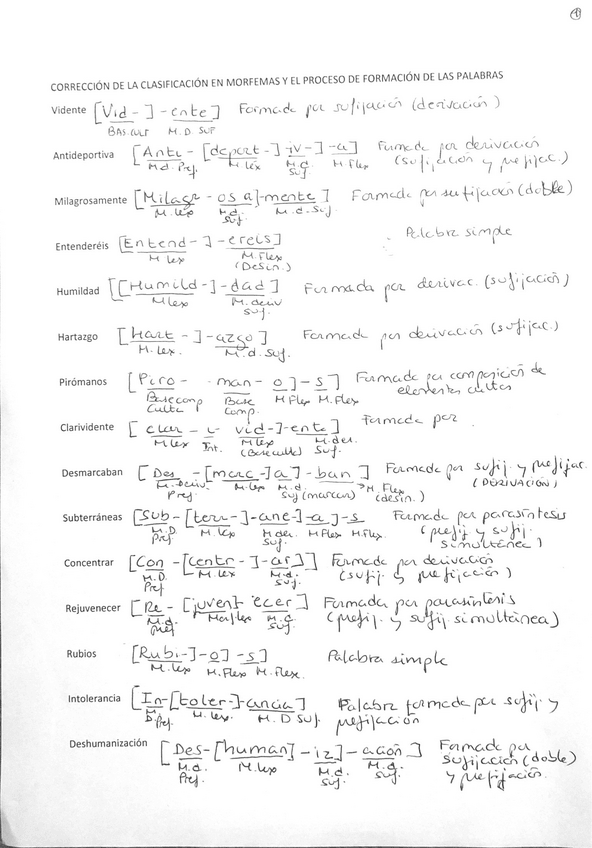 1
CORRECCIÓN DE LA CLASIFICACIÓN EN MORFEMAS Y EL PROCESO DE FORMACIÓN DE LAS PALABRAS
Vidente [Vid - ] - ente] Formada por sufijación (derivación)
Bas. cult M. D. SUF
Antideportiva [Anti - [deport - ] - iv - ] - a] Formada por derivación
M.d. Pref. M. lex M.d. Suf. M. Flex (sufijación y prefijac.)
Milagrosamente [Milagr - os a] - mente] Formada por sufijación (doble)
M. lex M.d. Suf M. d. Suf.
Entenderéis [Entend - ] - eréis] Palabra simple
M. lex M. Flex
(Desin.)
Humildad [[Humild - ] - dad] Formada por derivac. (sufijación)
M lex M. deriv
Suf.
Hartazgo [Hart - ] - azgo] Formada por derivación (sufijac.)
M. lex. M. d. Suf.
Pirómanos [Piro - man - o] - s] Formada por composición de
elementos cultos
Base comp Culta Base Comp. M Flex M. Flex
Clarividente [clar - i - vid - ] - ente] Formada por
M lex Int. M lex M. der.
(Base culta) Suf.
Desmarcaban [Des - [marc - ] a] - ban] Formada por sufij. y prefijac.
M. Deriv - M. lex M. d. M. Flex (DERIVACIÓN)
Pref. Suf (marcar) (desin.)
Subterráneas [Sub - [terr - ] - ane - ] - a] - s Formada por parasíntesis
M. D M. lex M der. M Flex M. Flex. (prefij y sufij.
Pref Suf. simultánea)
Concentrar [Con - [centr - ] - ar]] Formada por derivación
M. D. M. lex M. d. (sufij. y prefijación)
Pref Suf.
Rejuvenecer [Re - [juven ecer] Formada por parasíntesis
M. d. M. d. (prefij. y sufij. simultánea)
pref Suf.
Rubios [Rubi - ] - o] - s] Palabra simple
M. lex M. Flex M. Flex.
Intolerancia [In - [toler - ] - ancia] Palabra formada por sufij. y
M. D. Pref. M. lex. M. D Suf. prefijación
Deshumanización [Des - [human] - iz] - ación] Formada por
M. d. M. lex M. d. M. d. sufijación (doble)
Pref. Suf. Suf. y prefijación.